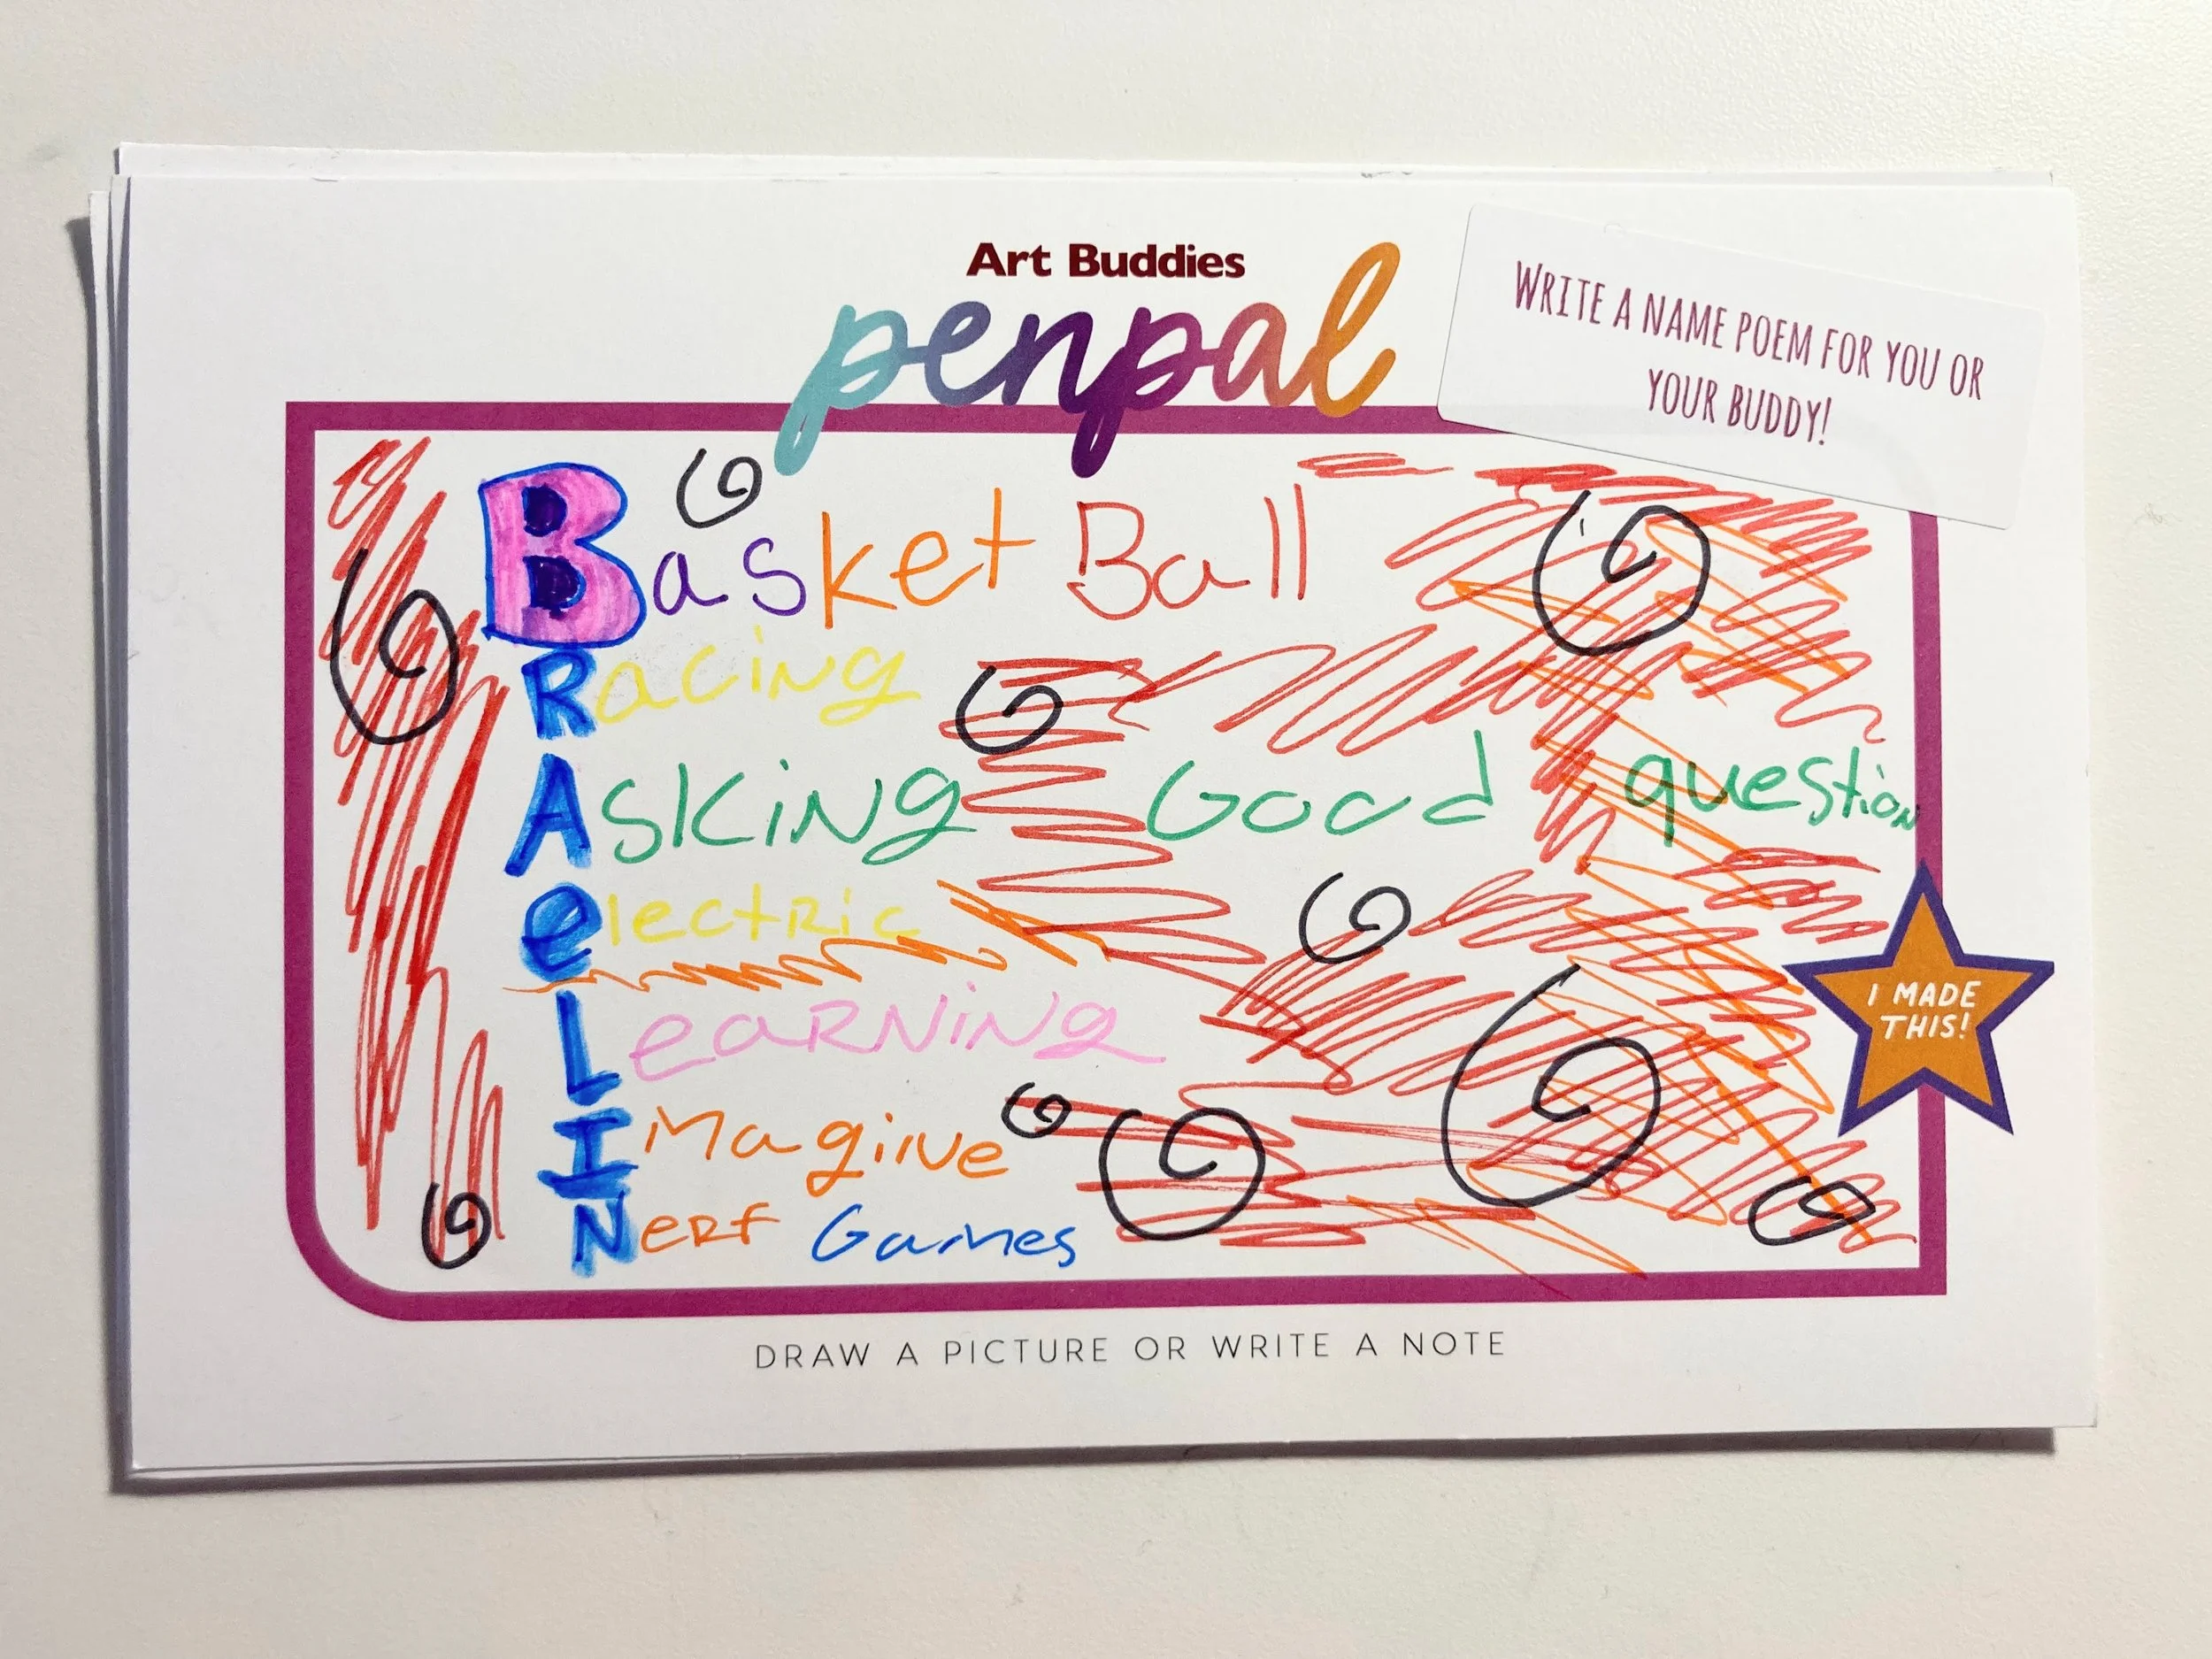 Art Buddies
penpal
WRITE A NAME POEM FOR YOU OR
YOUR BUDDY!
Basket Ball
Racing
Asking Good question
electric
Learning
Imagine
Nerf Games
I MADE
THIS!
DRAW A PICTURE OR WRITE A NOTE